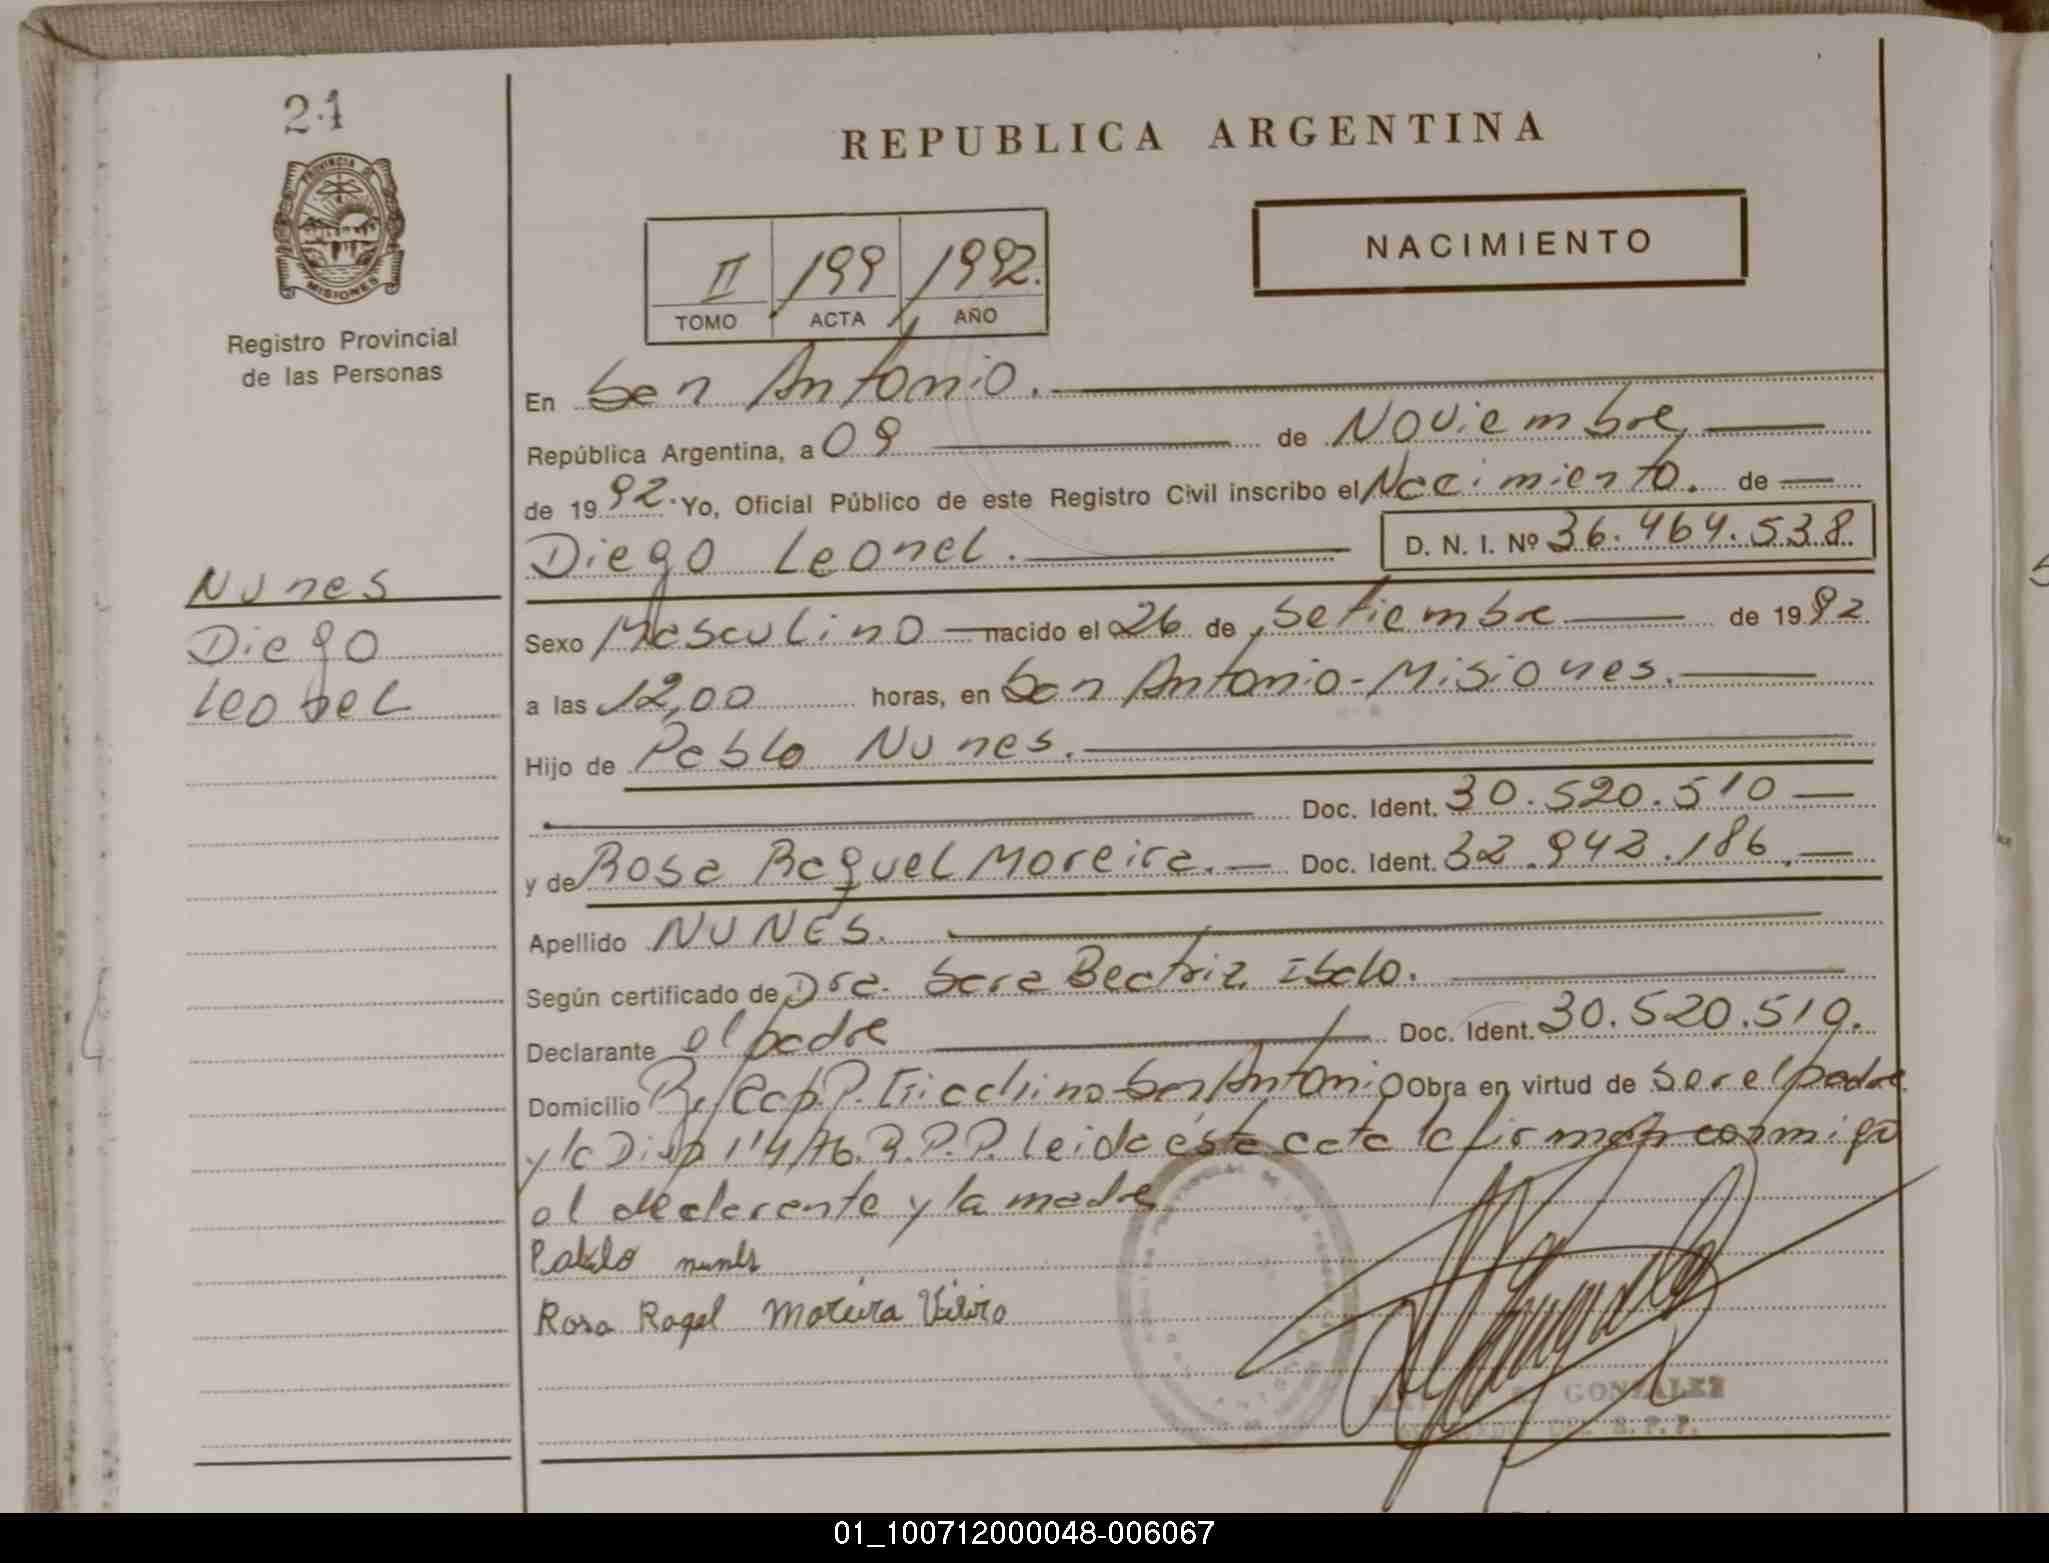 21
PROVINCIA DE
MISIONES
Registro Provincial
de las Personas
Nunes
Diego
Leonel
REPUBLICA ARGENTINA
NACIMIENTO
II 199 1992.
TOMO ACTA AÑO
En San Antonio.
República Argentina, a 09 de Noviembre
de 1992. Yo, Oficial Público de este Registro Civil inscribo el Nacimiento. de
Diego Leonel. D. N. I. Nº 36.464.538.
Sexo Masculino nacido el 26 de Setiembre de 1992
a las 12,00 horas, en San Antonio-Misiones.
Hijo de Pablo Nunes.
Doc. Ident. 30.520.510
y de Rosa Raquel Moreira. Doc. Ident. 32.942.186.
Apellido NUNES.
Según certificado de Dra. Sara Beatriz
Declarante el padre Doc. Ident. 30.520.510.
Domicilio San Antonio Obra en virtud de ser el padre
y la Disp 114/76. R.P.P. leida ésta acta la firman conmigo
el declarante y la madre
Pablo nunes
Rosa Raqel Moreira
GONZALEZ
R.P.P.
01_100712000048-006067